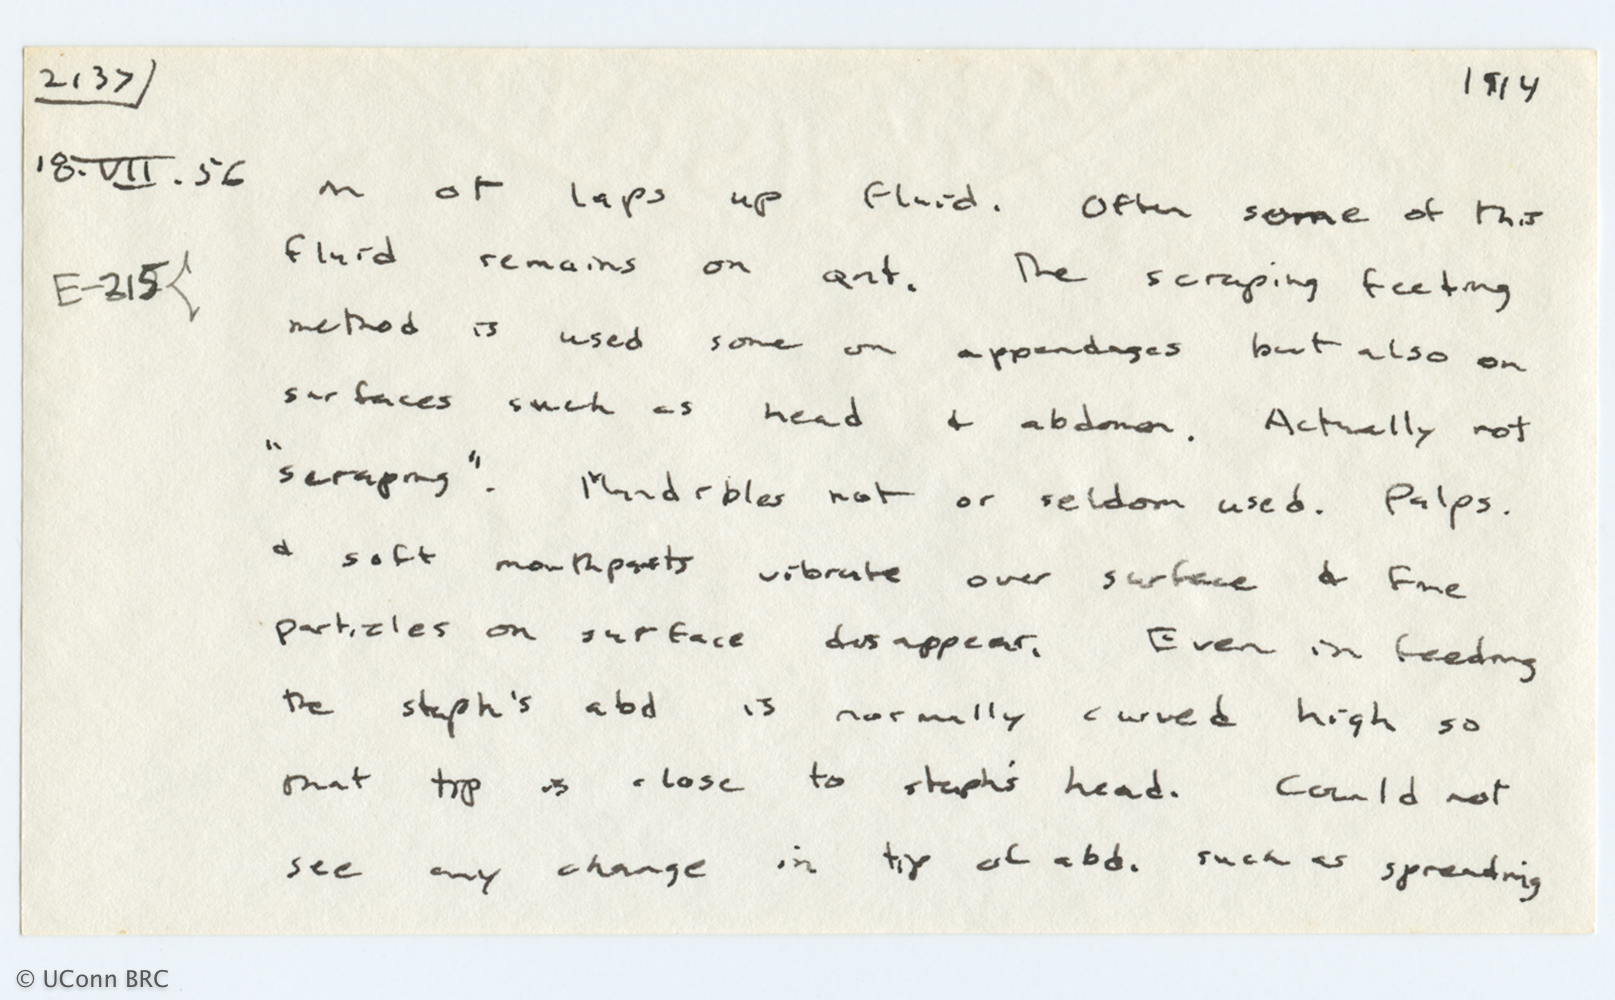 2137
1914
18.VII.56
m ot laps up fluid. Often some of this
E-215
fluid remains on ant. The scraping feeding
method is used some on appendages but also on
surfaces such as head & abdomen. Actually not
"scraping". Mandibles not or seldom used. Palps.
& soft mouthparts vibrate over surface & fine
particles on surface disappear. Even in feeding
the staph's abd is normally curved high so
that tip is close to staph's head. Could not
see any change in tip of abd. such as spreading
© UConn BRC